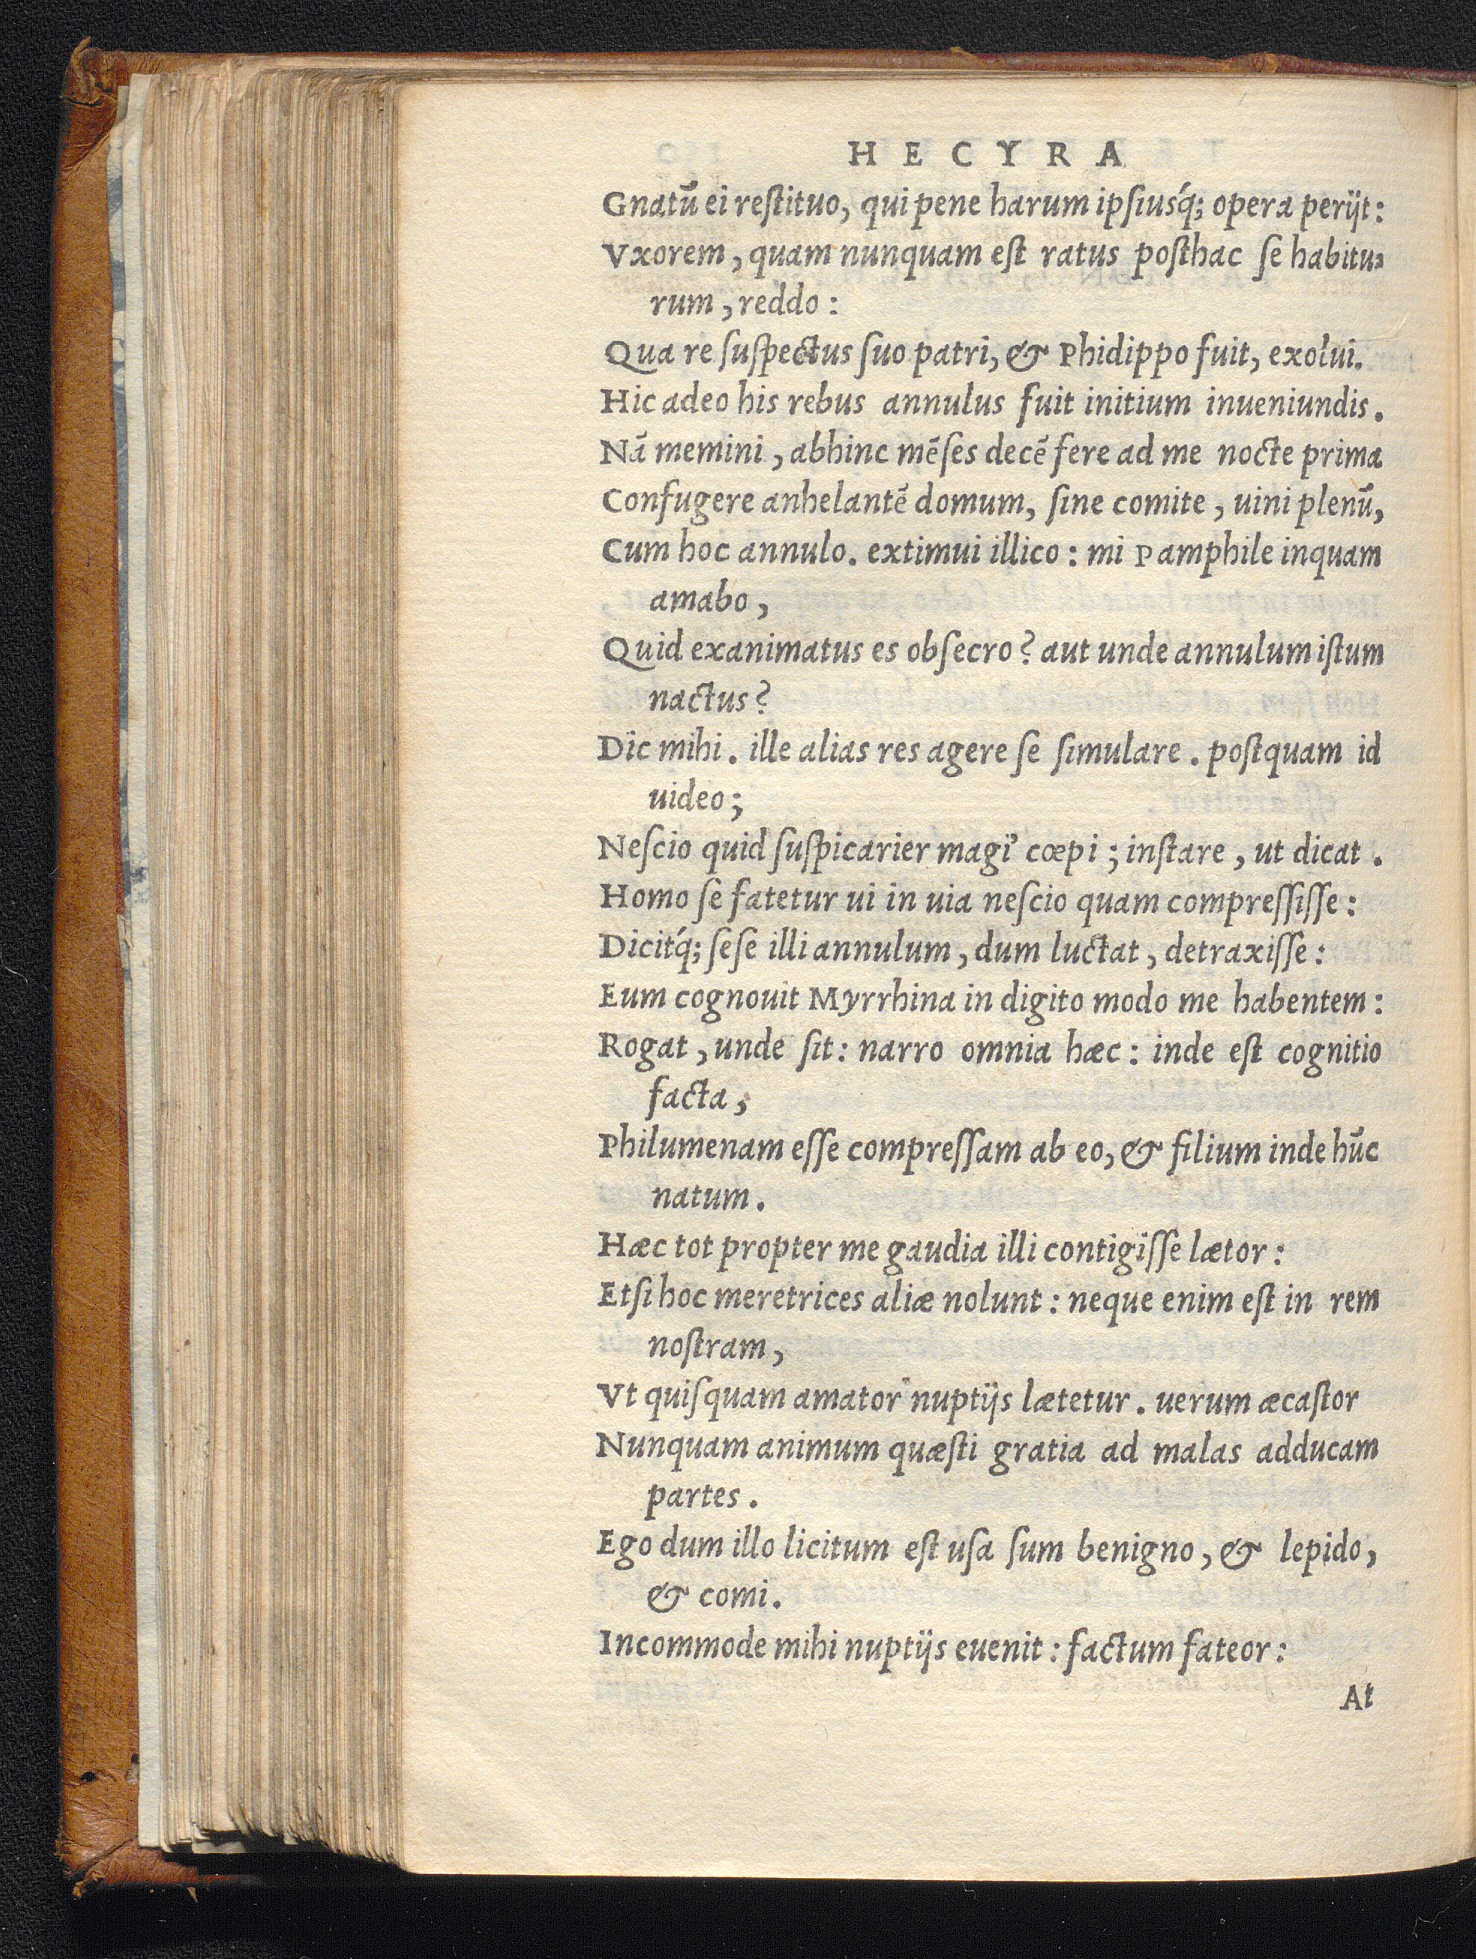 HECYRA
Gnatũ ei reſtituo, qui pene harum ipſiusq́; opera perijt:
Vxorem, quam nunquam eſt ratus poſthac ſe habitu-
rum, reddo:
Qua re ſuſpectus ſuo patri, & Phidippo fuit, exolui.
Hic adeo his rebus annulus fuit initium inueniundis.
Nã memini, abhinc mẽſes decẽ fere ad me nocte prima
Confugere anhelantẽ domum, ſine comite, uini plenũ,
Cum hoc annulo. extimui illico: mi Pamphile inquam
amabo,
Quid exanimatus es obſecro? aut unde annulum iſtum
nactus?
Dic mihi. ille alias res agere ſe ſimulare. poſtquam id
uideo;
Neſcio quid ſuſpicarier magi' cœpi; inſtare, ut dicat.
Homo ſe fatetur ui in uia neſcio quam compreſſiſſe:
Dicitq́; ſeſe illi annulum, dum luctat, detraxiſſe:
Eum cognouit Myrrhina in digito modo me habentem:
Rogat, unde ſit: narro omnia hæc: inde eſt cognitio
facta,
Philumenam eſſe compreſſam ab eo, & filium inde hũc
natum.
Hæc tot propter me gaudia illi contigiſſe lætor:
Etſi hoc meretrices aliæ nolunt: neque enim eſt in rem
noſtram,
Vt quiſquam amator nuptijs lætetur. uerum æcaſtor
Nunquam animum quæſti gratia ad malas adducam
partes.
Ego dum illo licitum eſt uſa ſum benigno, & lepido,
& comi.
Incommode mihi nuptijs euenit: factum fateor:
At